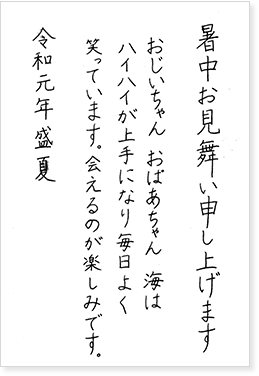 暑中お見舞い申し上げます
おじいちゃん おばあちゃん 海は
ハイハイが上手になり毎日よく
笑っています。会えるのが楽しみです。
令和元年盛夏